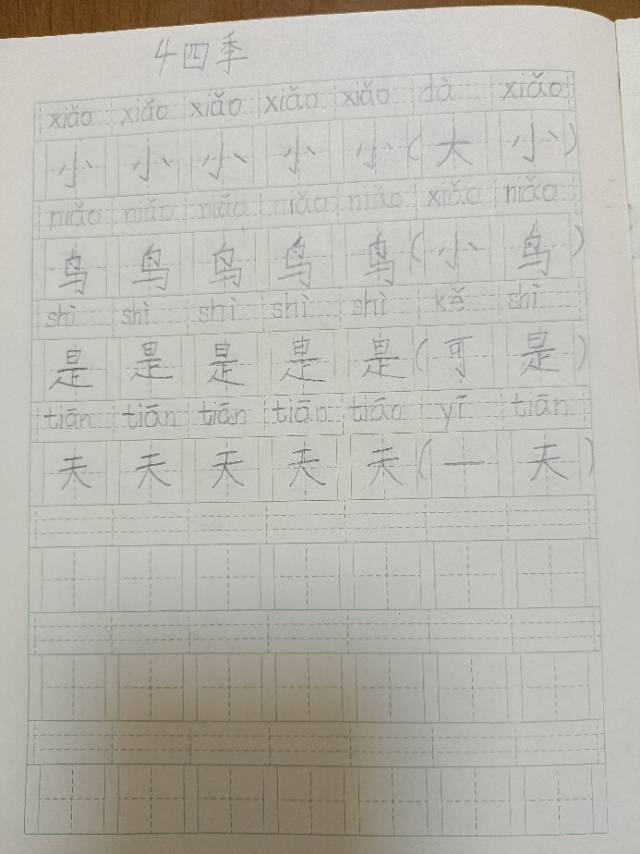 4 四季
xiǎo xiǎo xiǎo xiǎo xiǎo dà xiǎo
小 小 小 小 小 ( 大 小 )
niǎo niǎo niǎo niǎo niǎo xiǎo niǎo
鸟 鸟 鸟 鸟 鸟 ( 小 鸟 )
shì shì shì shì shì kě shì
是 是 是 是 是 ( 可 是 )
tiān tiān tiān tiān tiāo yī tiān
天 天 天 天 天 ( 一 天 )